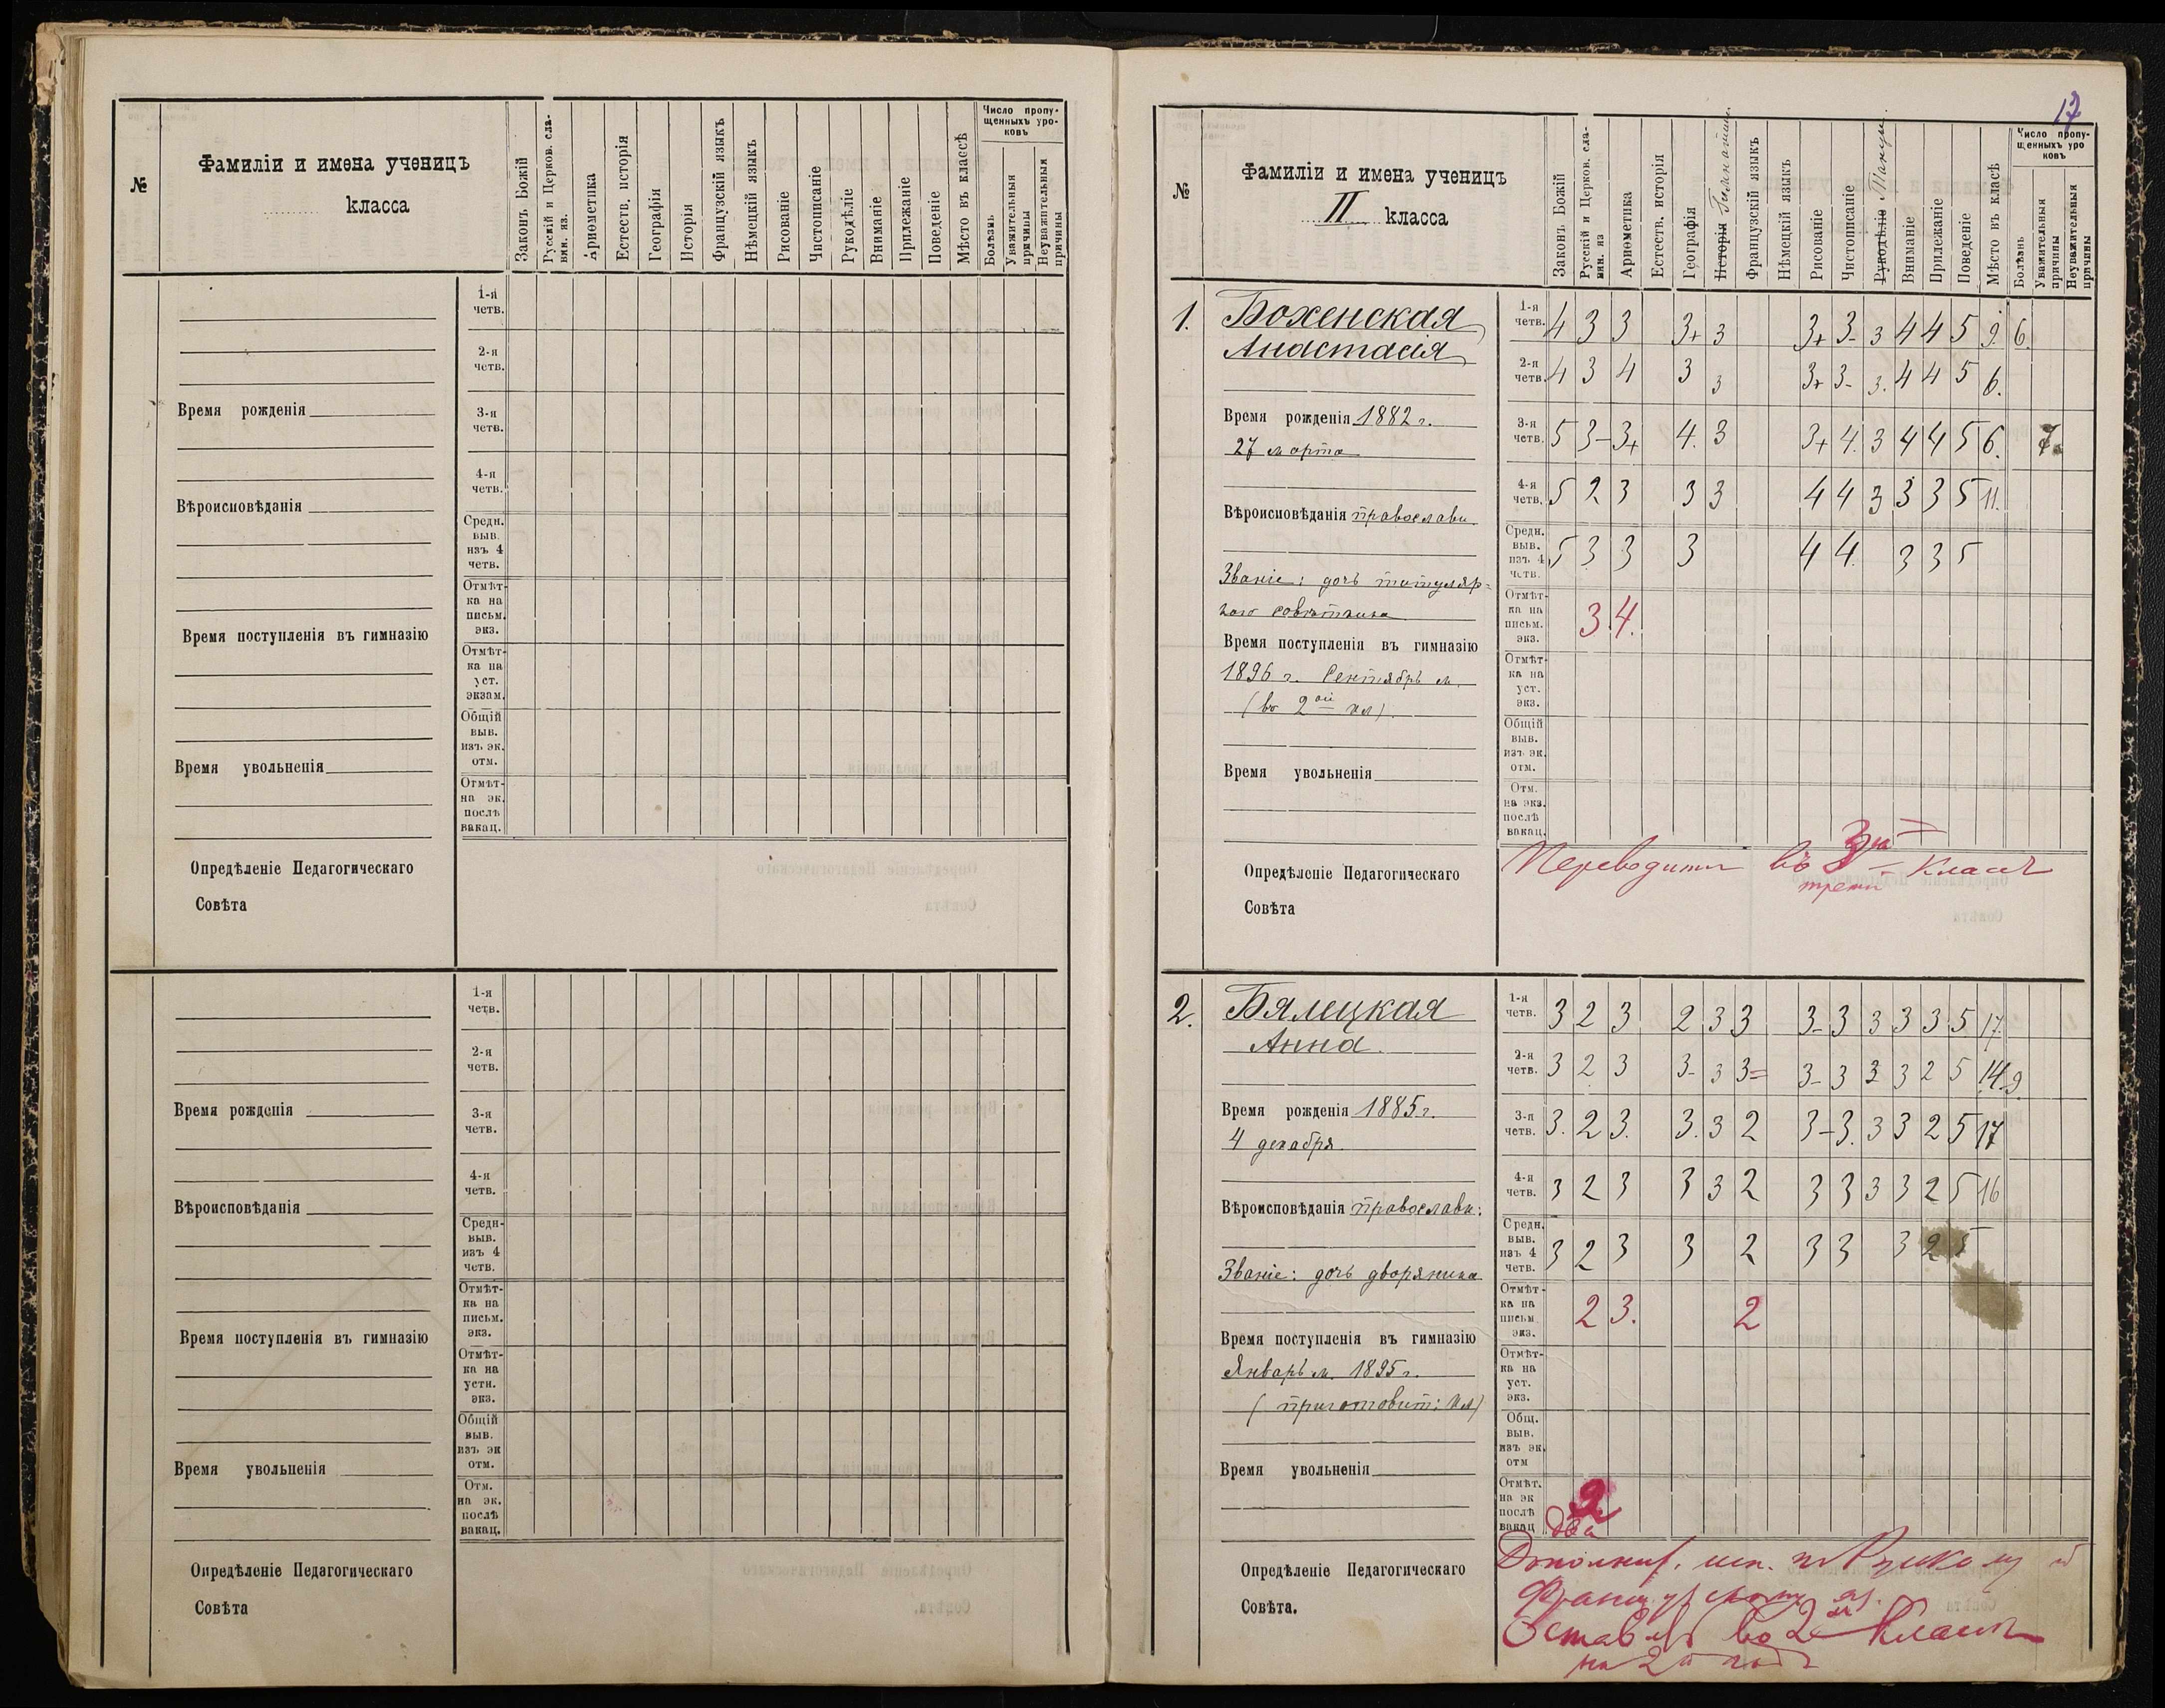 №
Фамиліи и имена ученицъ
класса
Законъ Божій
Русскій и Церков. сла-
вян. яз.
Ариѳметика
Естеств. исторія
Географія
Исторія
Французскій языкъ
Нѣмецкій языкъ
Рисованіе
Чистописаніе
Рукодѣліе
Вниманіе
Прилежаніе
Поведеніе
Мѣсто въ классѣ
Число пропу-
щенныхъ уро-
ковъ
Болѣзнь
Уважительныя
причины
Неуважительныя
причины
1-я
четв.
2-я
четв.
Время рожденія
3-я
четв.
4-я
четв.
Вѣроисповѣданія
Средн.
выв.
изъ 4
четв.
Отмѣт-
ка на
письм.
экз.
Время поступленія въ гимназію
Отмѣт-
ка на
уст.
экзам.
Общій
выв.
изъ эк.
отм.
Время увольненія
Отмѣт-
на эк.
послѣ
вакац.
Опредѣленіе Педагогическаго
Совѣта
1-я
четв.
2-я
четв.
Время рожденія
3-я
четв.
4-я
четв.
Вѣроисповѣданія
Средн-
выв.
изъ 4
четв.
Отмѣт-
ка на
письм.
экз.
Время поступленія въ гимназію
Отмѣт-
ка на
устн.
экз.
Общій
выв.
изъ эк
отм.
Время увольненія
Отм.
на эк.
послѣ
вакац.
Опредѣленіе Педагогическаго
Совѣта
17
№
Фамиліи и имена ученицъ
II класса
Законъ Божій
Русскій и Церков. сла-
вян. яз
Ариѳметика
Естеств. исторія
Географія
Исторія Гимнастик.
Французскій языкъ
Нѣмецкій языкъ
Рисованіе
Чистописаніе
Рукодѣліе Танцы
Вниманіе
Прилежаніе
Поведеніе
Мѣсто въ класѣ
Число пропу-
щенныхъ уро
ковъ
Болѣзнь
Уважительныя
причины
Неуважительныя
причины
1. Боженская
Анастасія
1-я
четв. 4 3 3 3+ 3 3+ 3- 3 4 4 5 9. 6.
2-я
четв. 4 3 4 3 3 3+ 3- 3. 4 4 5 6.
Время рожденія 1882 г.
27 марта
3-я
четв. 5 3- 3+ 4. 3 3+ 4. 3 4 4 5 6. 7.
4-я
четв. 5 2 3 3 3 4 4 3 3 3 5 11.
Вѣроисповѣданія православн.
Средн.
выв.
изъ 4
четв. 5 3 3 3 4 4. 3 3 5
Званіе: дочь титуляр-
наго совѣтника
Отмѣт-
ка на
письм.
экз. 3. 4.
Время поступленія въ гимназію
1896 г. Сентябрь м.
(во 2ой кл)
Отмѣт-
ка на
уст.
экз.
Общій
выв.
изъ эк.
отм.
Время увольненія
Отм.
на экз.
послѣ
вакац.
Опредѣленіе Педагогическаго
Совѣта
въ 3й классъ
2. Бялецкая
Анна.
1-я
четв. 3 2 3 2 3 3 3- 3 3 3 3 5 17.
2-я
четв. 3 2 3 3- 3 3= 3- 3 3 3 2 5 14. 9.
Время рожденія 1885 г.
4 декабря
3-я
четв. 3. 2 3. 3. 3 2 3- 3. 3 3 2 5 17
4-я
четв. 3 2 3 3 3 2 3 3 3 3 2 5 16
Вѣроисповѣданія православн:
Средн.
выв.
изъ 4
четв. 3 2 3 3 2 3 3 3 2 5
Званіе: дочь дворянина
Отмѣт-
ка на
письм
экз. 2 3. 2
Время поступленія въ гимназію
Январь м. 1895 г.
(приготовит: кл)
Отмѣт-
ка на
уст.
экз.
Общ.
выв.
изъ эк.
отм
Время увольненія
Отмѣт.
на эк
послѣ
вакац 2
два
Опредѣленіе Педагогическаго
Совѣта.
Русскому и
Французскому яз.
Оставл. во 2 классѣ
на 2й годъ